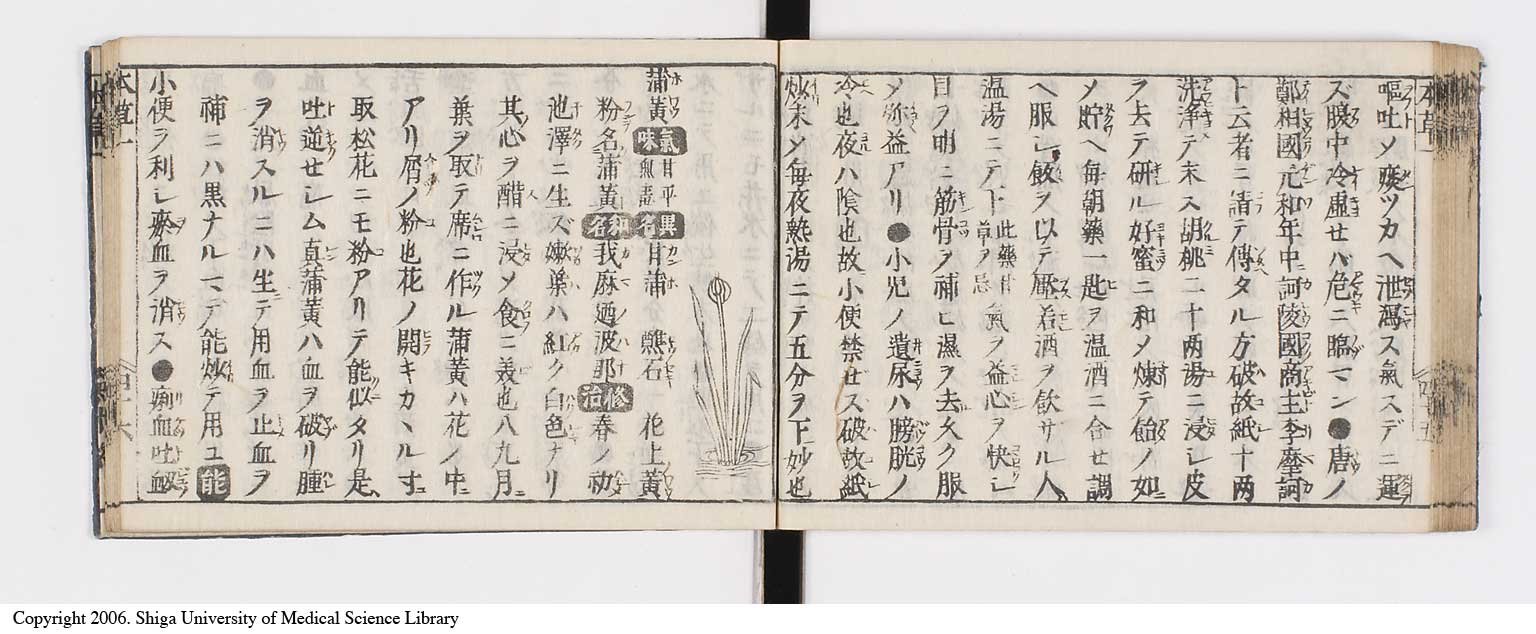 本草一
嘔吐メ痰ツカヘ泄瀉ス氣スデニ運
ズ膓中冷虚セバ危ニ臨マン●唐ノ
鄭相國元和年中訶陵國商主李摩訶
ト云者ニ請テ傳タル方破故紙十两
洗浄テ末ス胡桃二十两湯ニ浸し皮
ヲ去テ研ル好蜜ニ和メ煉テ飴ノ如
メ貯ヘ毎朝藥一匙ヲ温酒ニ合セ調
ヘ服し飯ヲ以テ壓若酒ヲ飲サル人
温湯ニテ下此藥甘草ヲ忌氣ヲ益心ヲ快し
目ヲ明ニ筋骨ヲ補ヒ濕ヲ去久ク服
メ弥益アリ●小児ノ遺尿ハ膀胱ノ
冷也夜ハ陰也故小便禁セス破故紙
炒末メ毎夜熱湯ニテ五分ヲ下妙也
蒲黄氣味甘平無毒異名甘蒲 醮石 花上黄
粉名蒲黄和名我麻廼波那修治春ノ初
池澤ニ生ズ嫩葉ハ紅ク白色ナリ
其心ヲ醋ニ浸メ食ニ美也八九月
葉ヲ取テ席ニ作ル蒲黄ハ花ノ中
アリ屑ノ粉也花ノ開キカヽル寸
取松花ニモ粉アリテ能似タリ是
吐逆せしム真蒲黄ハ血ヲ破リ腫
ヲ消スルニハ生テ用血ヲ止血ヲ
補ニハ黒ナルマテ能炒テ用ユ能
小便ヲ利し瘀血ヲ消ス●痢血吐血
本草一